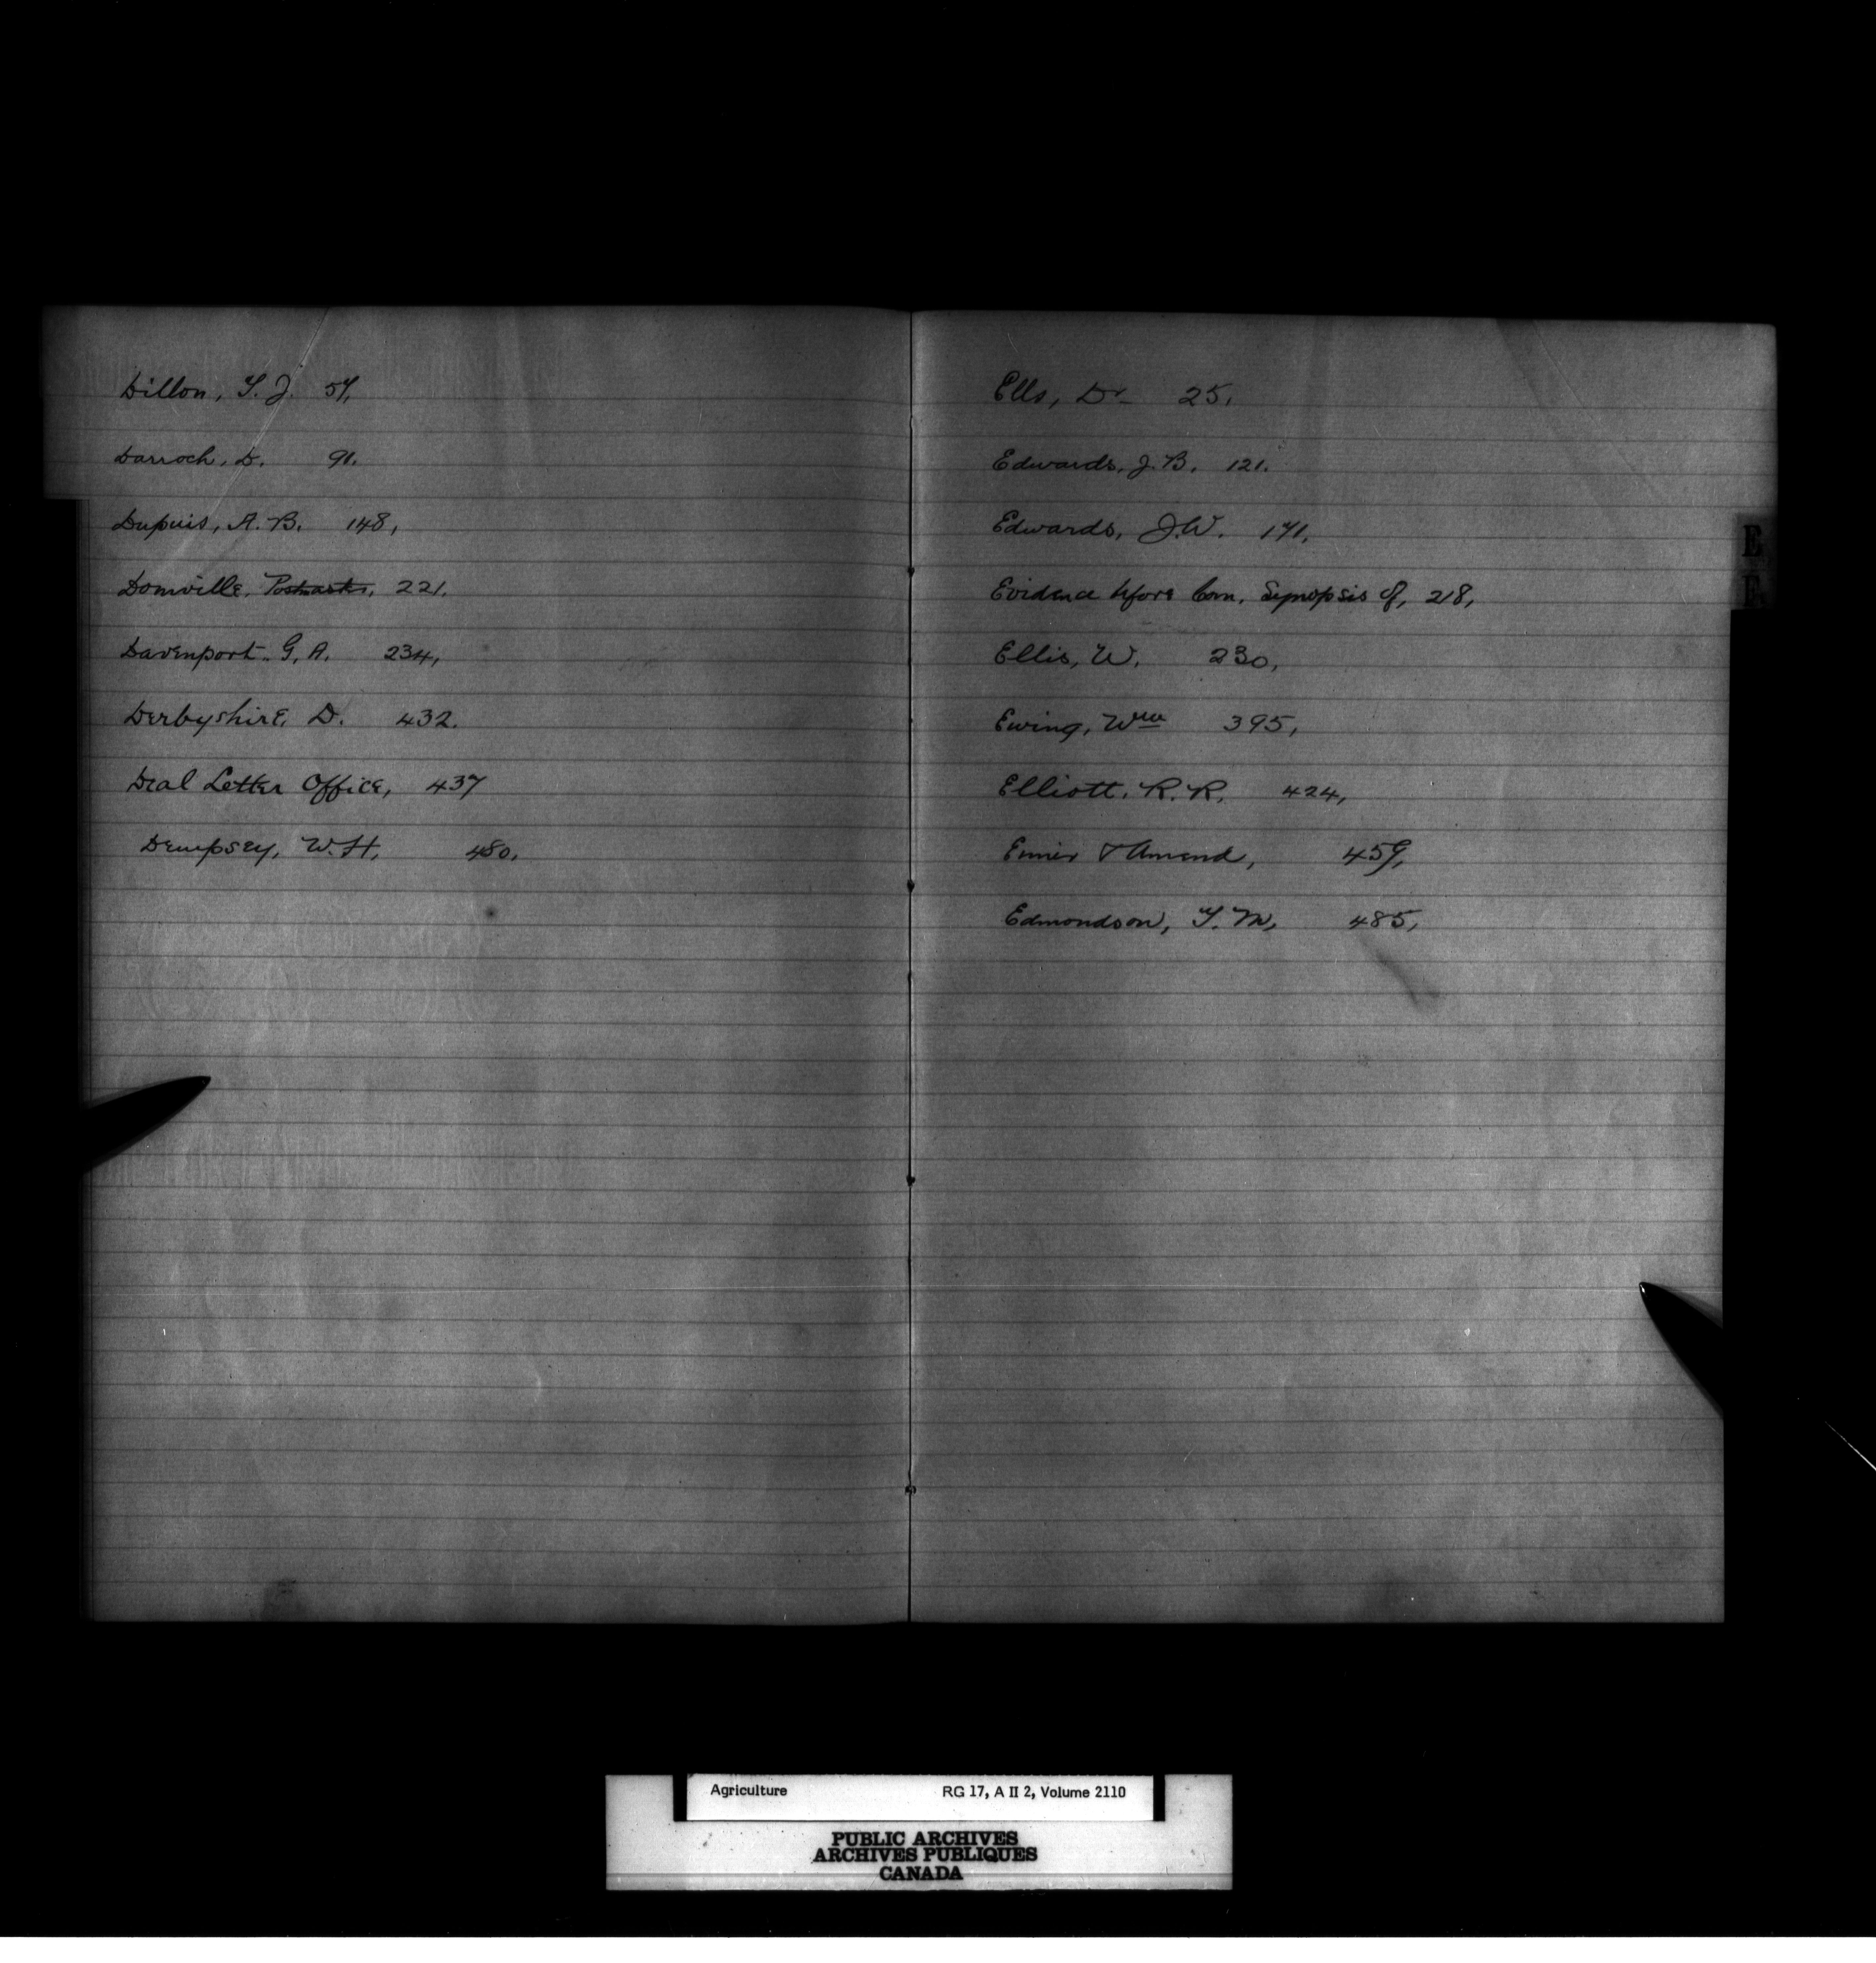 Dillon, T. J. 57,
Darroch, D. 91.
Dupuis, A. B. 148,
Domville, Postmaster, 221.
Davenport, G. A. 234,
Derbyshire, D. 432.
Deal Letter Office, 437
Dempsey, W. H, 480,
Ells, Dr 25,
Edwards, J. B. 121.
Edwards, J. W. 171,
Evidence before Com, Synopsis of, 218,
Ellis, W. 230,
Ewing, Wm 395,
Elliott, R. R. 424,
Eimer & Amend, 459,
Edmondson, T. M, 485,
E
E
Agriculture RG 17, A II 2, Volume 2110
PUBLIC ARCHIVES
ARCHIVES PUBLIQUES
CANADA